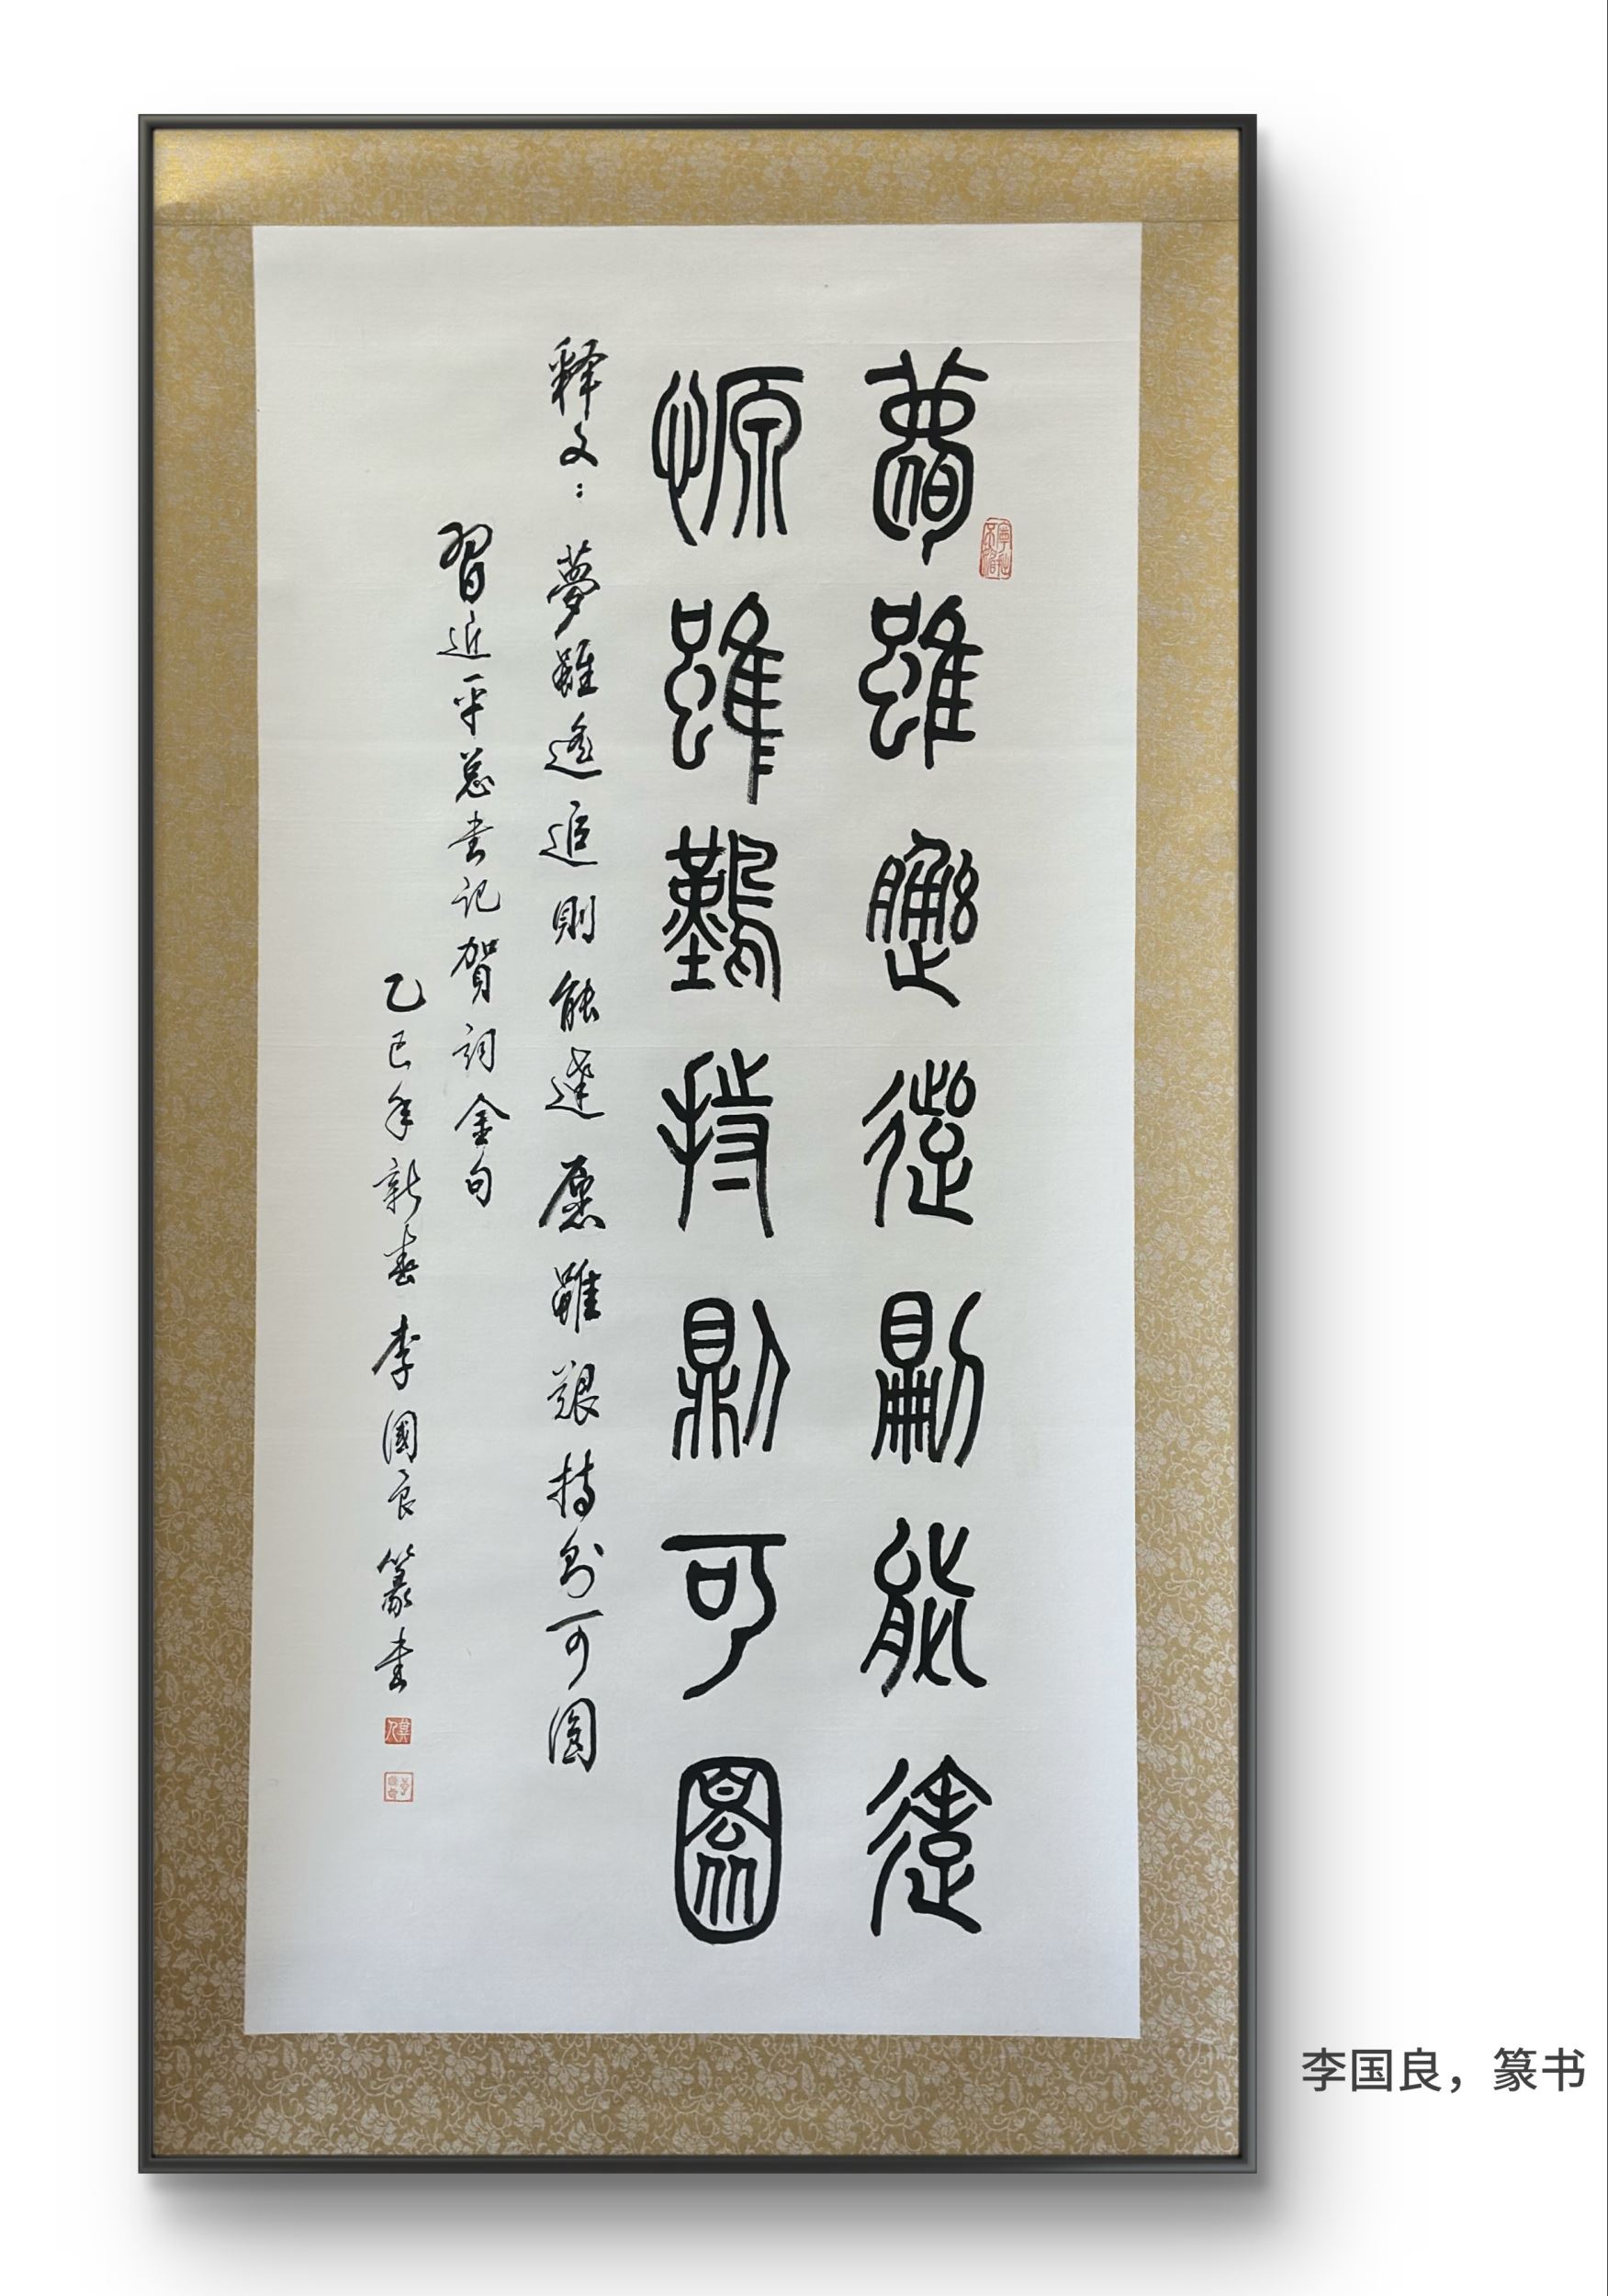 夢雖遙追則能達
愿雖艱持則可圓
释文：夢雖遥追則能達愿雖艱持則可圓
習近平总书记賀詞金句
乙巳年新春李國良篆书
李国良，篆书